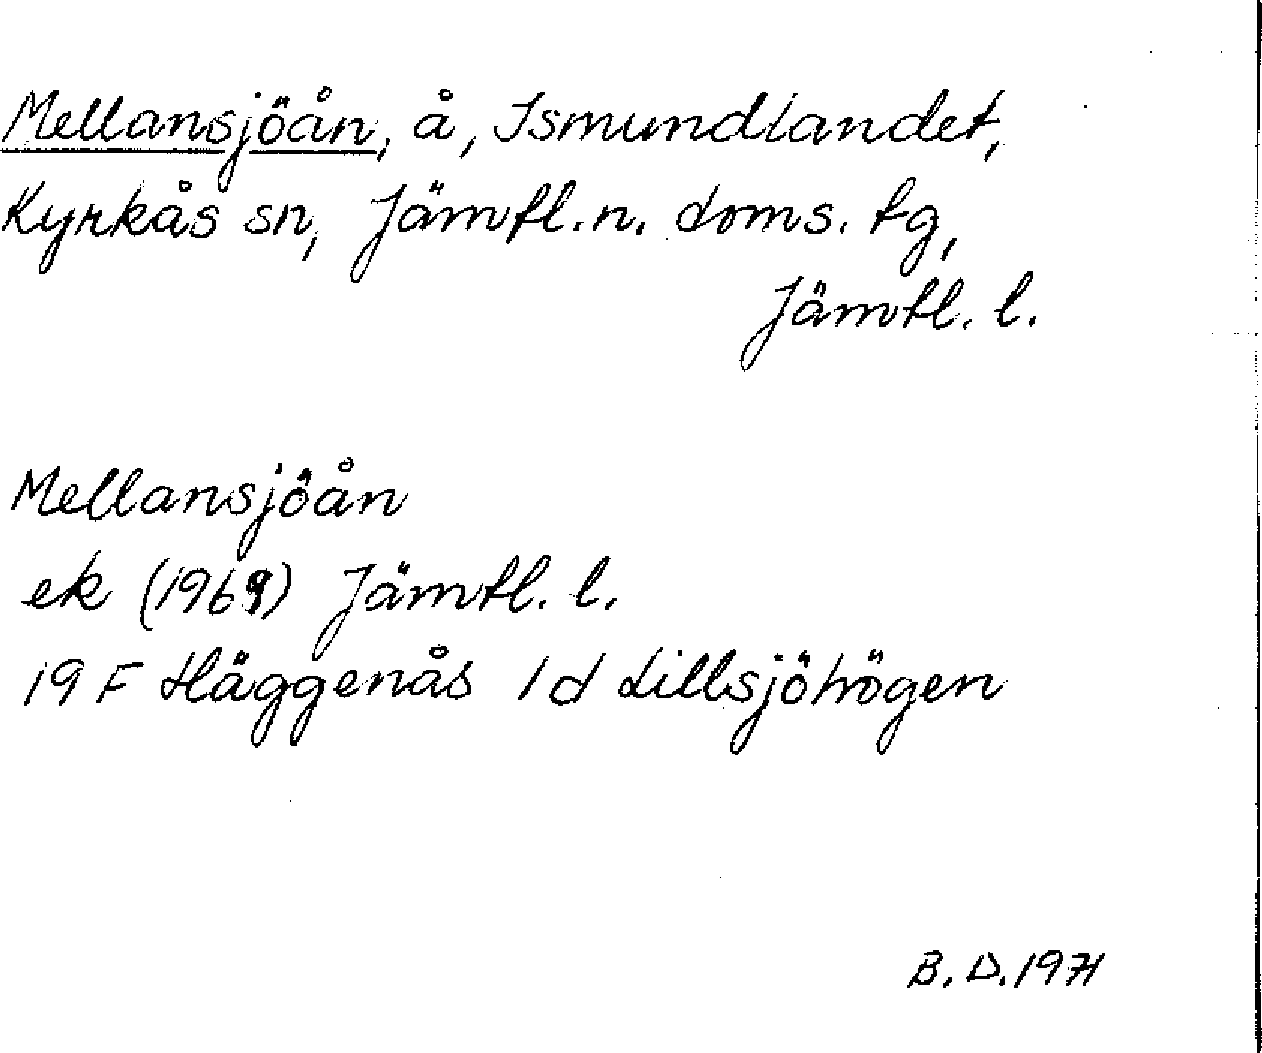 Mellansjöån, å, Ismundlandet,
Kyrkås sn, Jämtl. n. doms. tg,
Jämtl. l.
Mellansjöån
ek (1969) Jämtl. l.
19 F Häggenås 1 d Lillsjöhögen
B. D. 1971